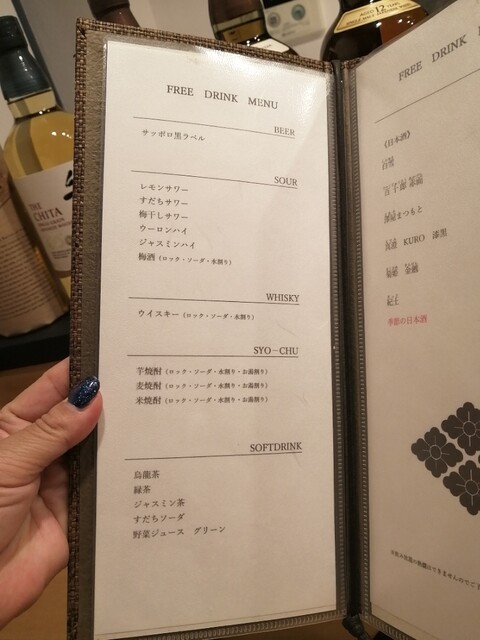 FREE DRINK MENU
BEER
サッポロ黒ラベル
SOUR
レモンサワー
すだちサワー
梅干しサワー
ウーロンハイ
ジャスミンハイ
梅酒（ロック・ソーダ・水割り）
WHISKY
ウイスキー（ロック・ソーダ・水割り）
SYO－CHU
芋焼酎（ロック・ソーダ・水割り・お湯割り）
麦焼酎（ロック・ソーダ・水割り・お湯割り）
米焼酎（ロック・ソーダ・水割り・お湯割り）
SOFTDRINK
烏龍茶
緑茶
ジャスミン茶
すだちソーダ
野菜ジュース グリーン
FREE DRINK
《日本酒》
澤屋まつもと
KURO 漆黒
季節の日本酒
THE
CHITA
12